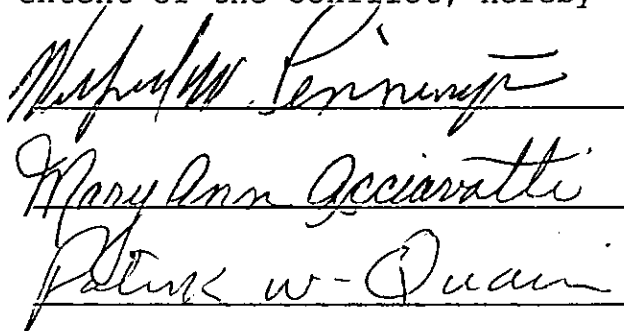 extent of the conflict, hereby
W. Pennington
Mary Ann Acciavatti
Patrick W. Quain